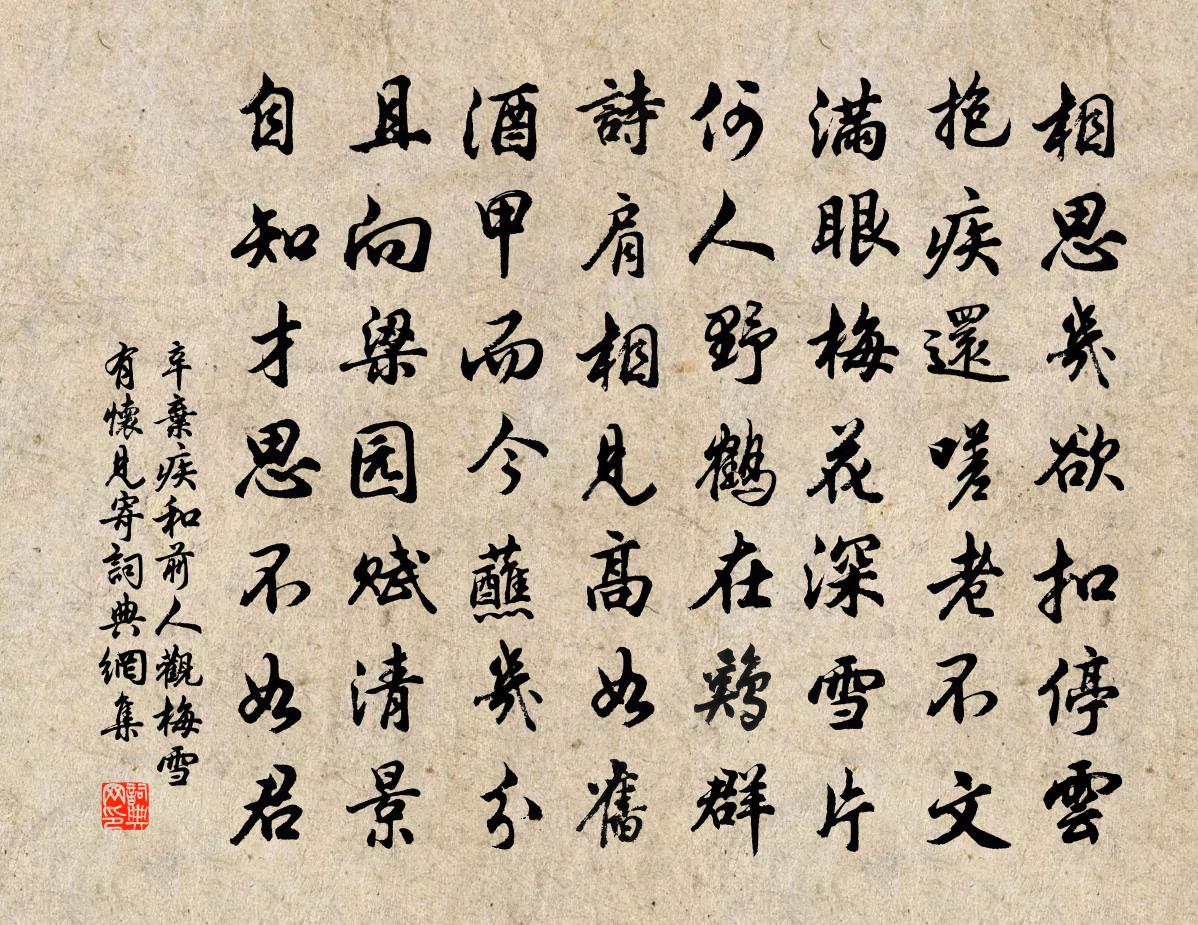 相思幾欲扣停雲
抱疾還嗟老不文
滿眼梅花深雪片
何人野鶴在鷄群
詩肩相見高如舊
酒甲而今蘸幾分
且向梁园賦清景
自知才思不如君
辛棄疾和前人觀梅雪
有懷見寄詞典網集
詞典
网印